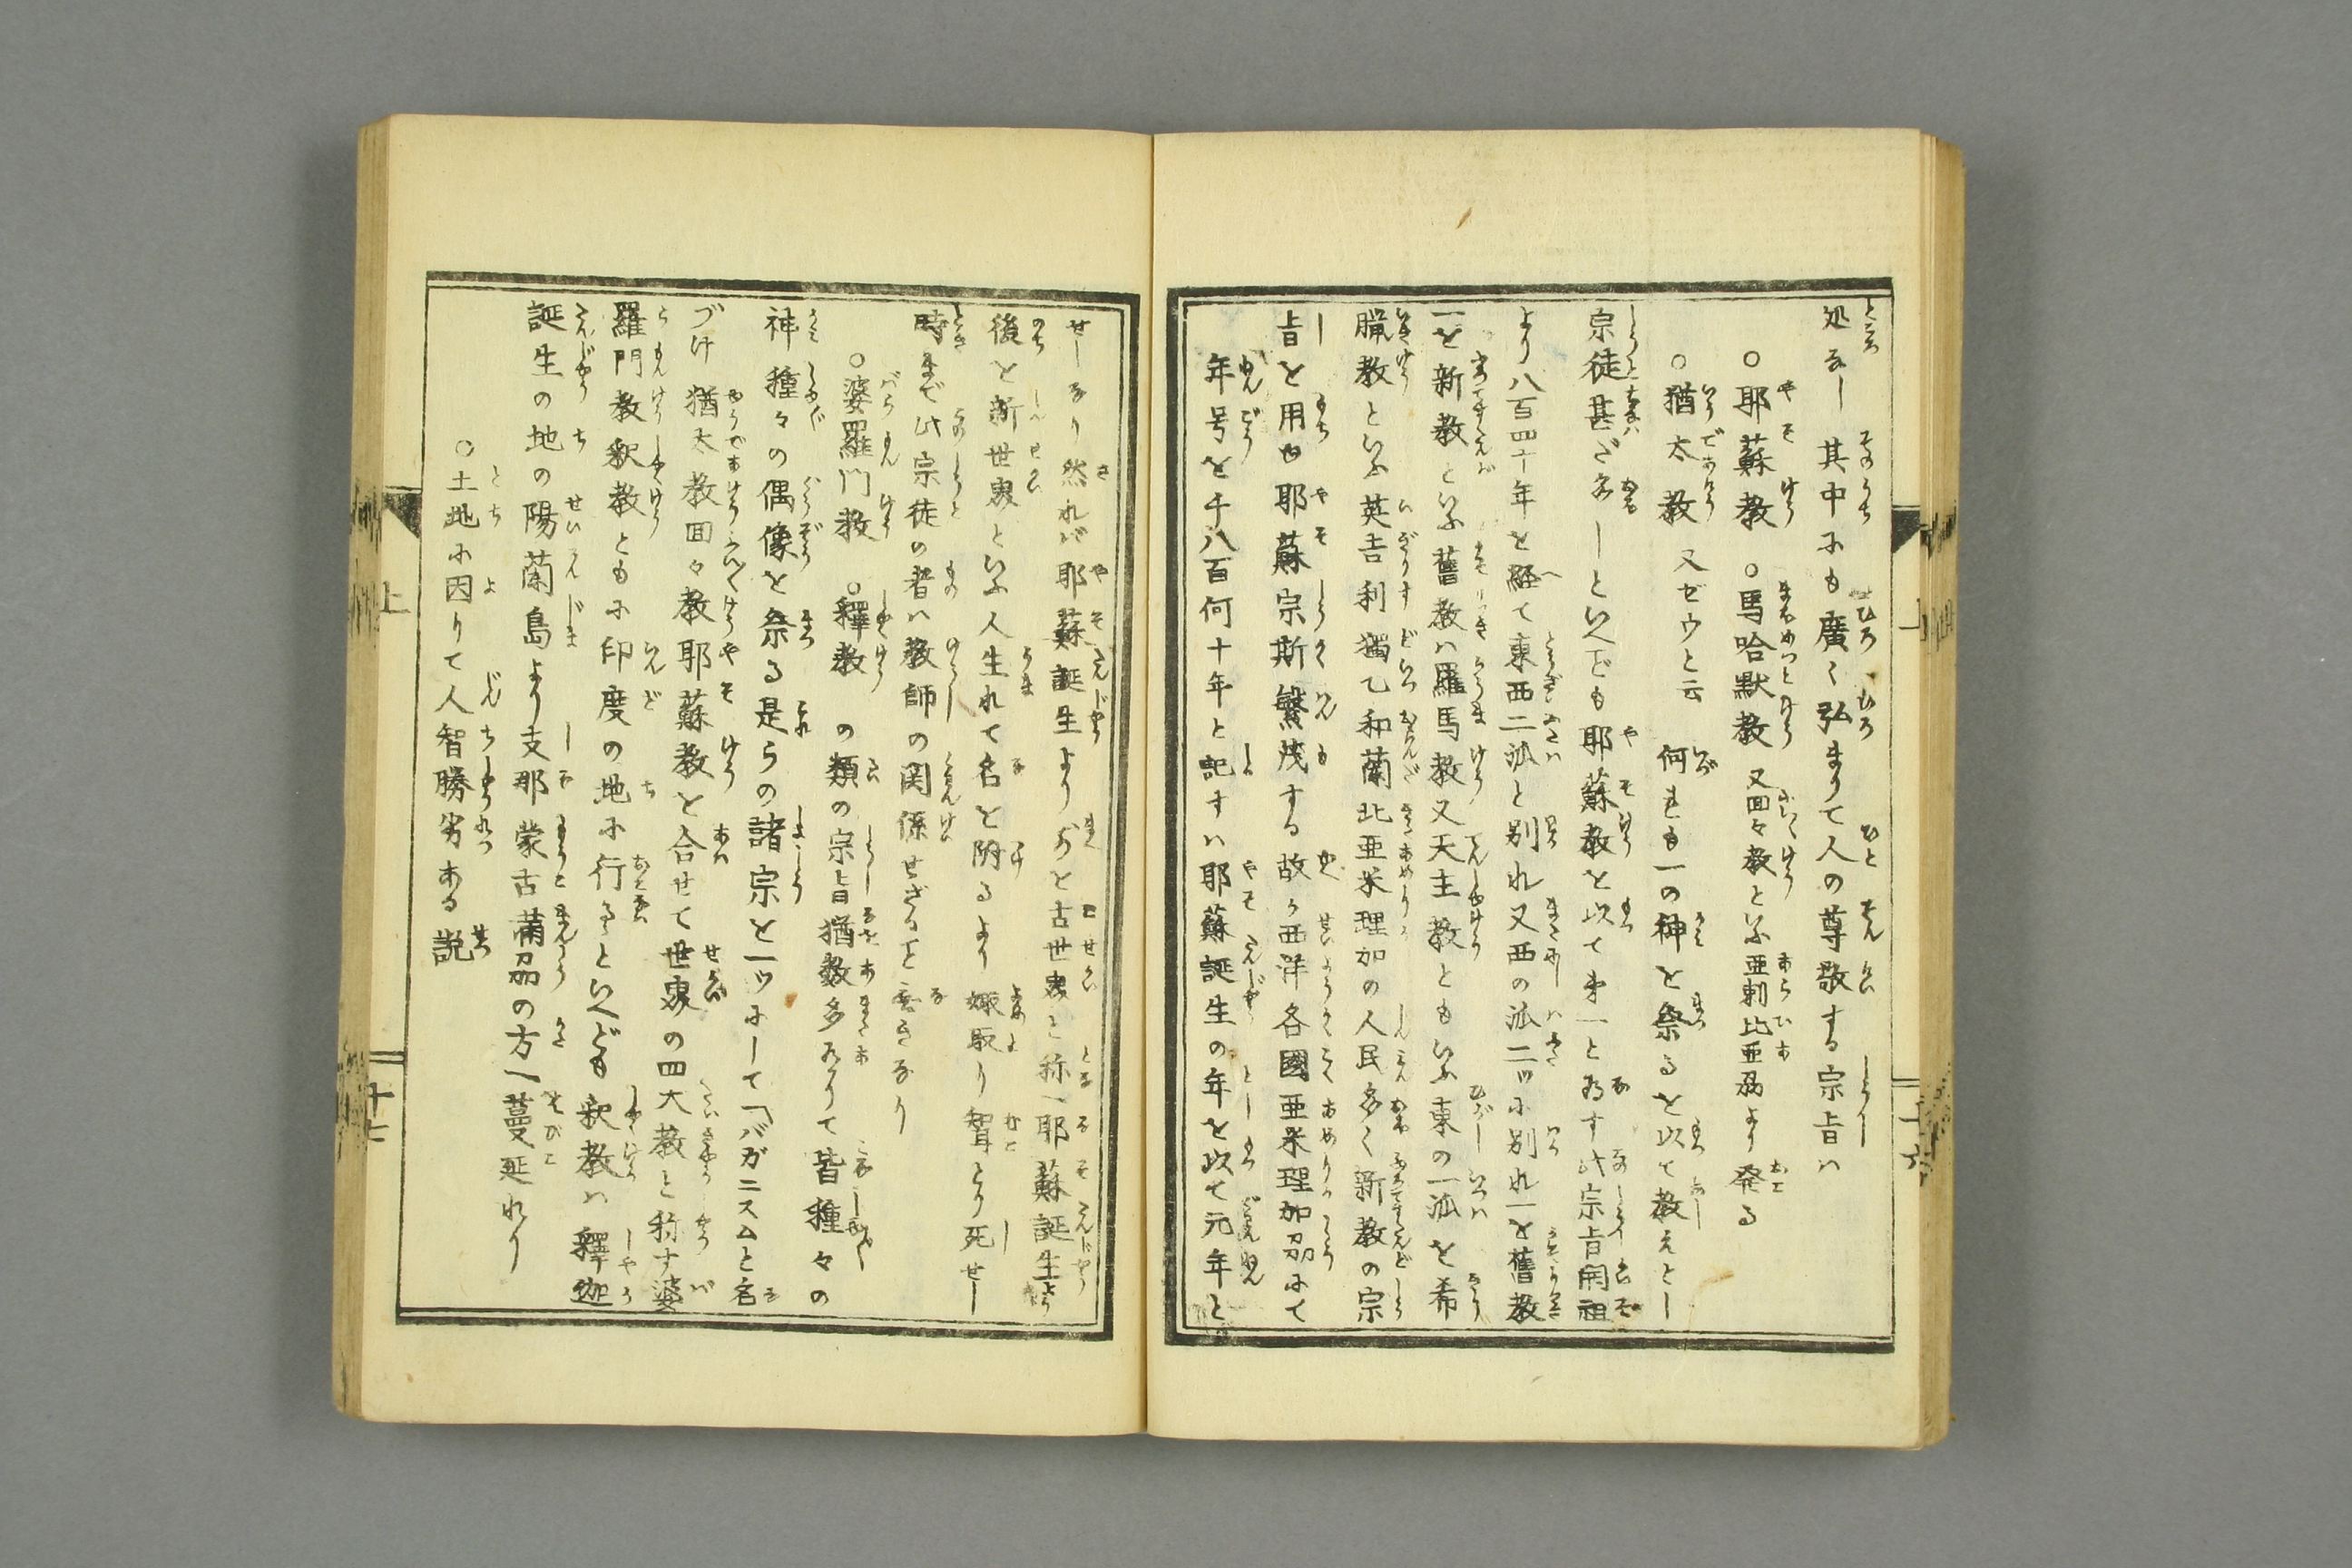 処なし其中にも廣く弘まりて人の尊敬する宗旨ハ
○耶蘇教 ○馬哈默教 又回々教といふ亜剌比亜州より発る
○猶太教 又ゼウと云 何れも一の神を祭るを以て教えとし
宗徒甚だ多しといへども耶蘇教を以て第一と為す此宗旨開祖
より八百四十年を経て東西二派と別れ又西の派二ツに別れ一を舊教
一を新教といふ舊教ハ羅馬教又天主教ともいふ東の一派を希
臘教といふ英吉利獨乙和蘭北亜米理加の人民多く新教の宗
旨を用ゆ耶蘇宗斯繁茂する故ゟ西洋各國亜米理加州にて
年号を千八百何十年と記すハ耶蘇誕生の年を以て元年と
せしなり然れバ耶蘇誕生より前を古世界と称へ耶蘇誕生より
後を新世界といふ人生れて名を附るより嫁取り聟とり死せし
時まで此宗徒の者ハ教師の関係せざること無きなり
○婆羅門教 ○釋教 の類の宗旨猶数多ありて皆種々の
神種々の偶像を祭る是らの諸宗を一ツにして「バガニスムと名
づけ猶太教回々教耶蘇教を合せて世界の四大教と称す婆
羅門教釈教ともに印度の地に行るといへども釈教ハ釋迦
誕生の地の陽蘭島より支那蒙古満州の方へ蔓延れり
○土地に因りて人智勝劣ある説
上
十七
上
十六